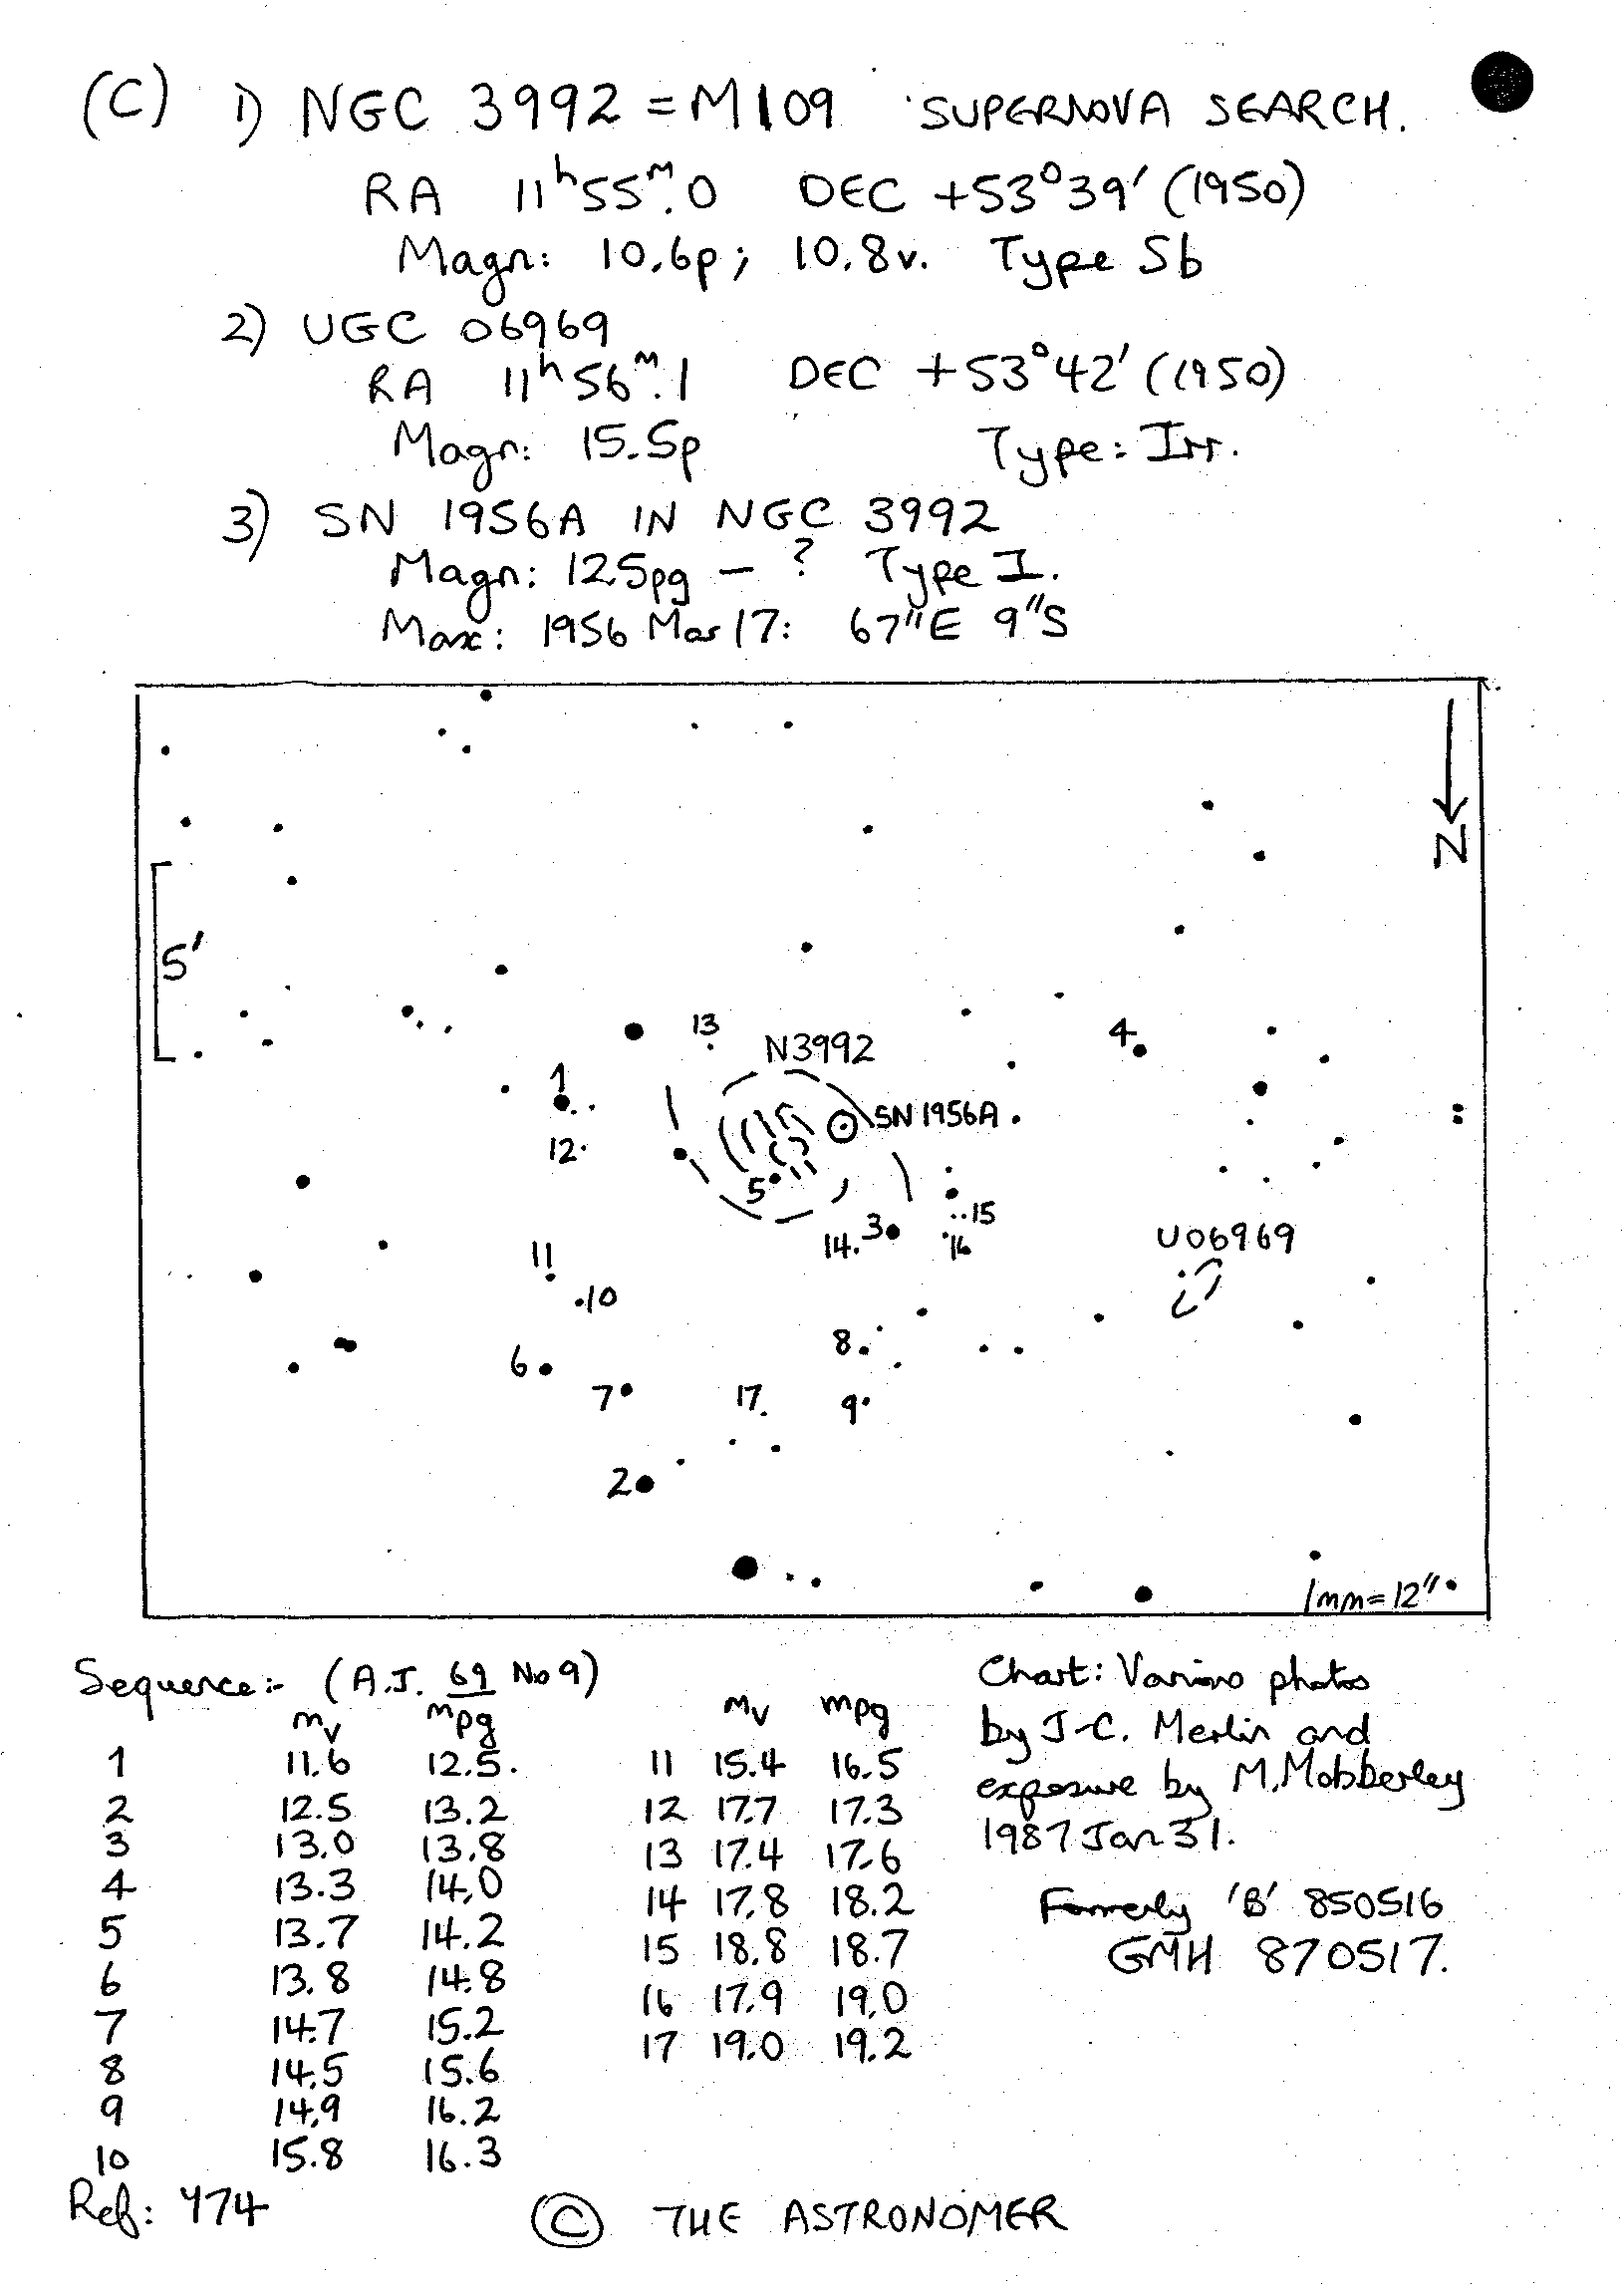 (C) 1) NGC 3992 = M109 SUPERNOVA SEARCH.
RA 11h55m.0 DEC +53°39′ (1950)
Magn: 10.6p; 10.8v. Type Sb
2) UGC 06969
RA 11h56m.1 DEC +53°42′ (1950)
Magn: 15.5p Type: Irr.
3) SN 1956A IN NGC 3992
Magn: 12.5pg – ? Type I.
Max: 1956 Mar 17: 67″E 9″S
N
5′
13
N3992
4
1
SN 1956A
12
5
15
3
14
16
U06969
11
10
8
6
7
17
9
2
1mm = 12″
Sequence:- (A.J. 69 No 9)
mv mpg mv mpg
1 11.6 12.5. 11 15.4 16.5
2 12.5 13.2 12 17.7 17.3
3 13.0 13.8 13 17.4 17.6
4 13.3 14.0 14 17.8 18.2
5 13.7 14.2 15 18.8 18.7
6 13.8 14.8 16 17.9 19.0
7 14.7 15.2 17 19.0 19.2
8 14.5 15.6
9 14.9 16.2
10 15.8 16.3
Chart: Various photos
by J-C. Merlin and
exposure by M. Mobberley
1987 Jan 31.
Formerly 'B' 850516
GMH 870517.
Ref: Y74
© THE ASTRONOMER